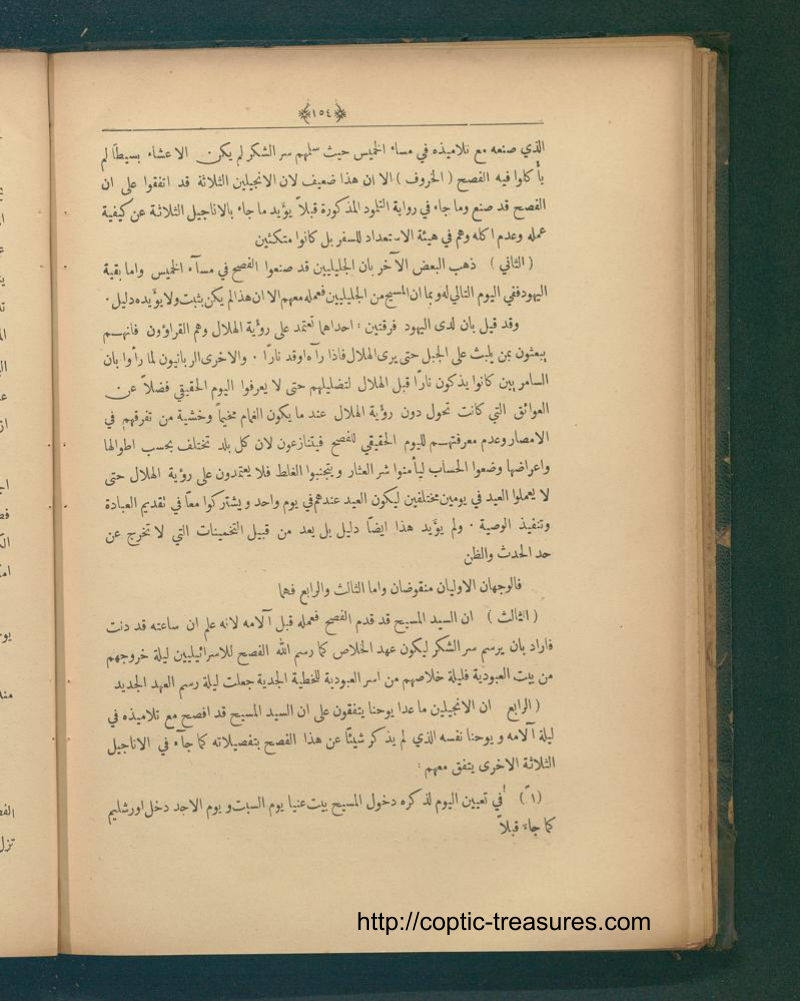 ١٥٤
الذي صنعه مع تلاميذه في مساء الخميس حيث سلمهم سر الشكر لم يكن الا عشاء بسيطاً لم
يأكلوا فيه الفصح ( الخروف ) الا ان هذا ضعيف لان الانجيلين الثلاثة قد اتفقوا على ان
الفصح قد صنع وما جاء في رواية التلمود المذكورة قبلاً يؤيد ما جاء بالاناجيل الثلاثة عن كيفية
عمله وعدم اكله وهم في هيئة الاستعداد للسفر بل كانوا متكئين
( الثاني ) ذهب البعض الآخر بان الجليليين قد صنعوا الفصح في مسآء الخميس واما بقية
اليهود ففي اليوم التالي له وبما ان المسيح من الجليليين فعمله معهم الا ان هذا لم يكن يثبت ولا يؤيده دليل .
وقد قيل بان لدى اليهود فرقتين : احداهما تعتمد على رؤية الهلال وهم القراؤون فانهم
يبعثون بمن يلبث على الجبل حتى يرى الهلال فاذا رآه اوقد ناراً . والاخرى الربانيون لما رأوا بان
السامريين كانوا يذكون ناراً قبل الهلال لتضليلهم حتى لا يعرفوا اليوم الحقيقي فضلاً عن
العوائق التي كانت تحول دون رؤية الهلال عند ما يكون الغمام مخيماً وخشية من تفرقهم في
الامصار وعدم معرفتهم لليوم الحقيقي للفصح فيتنازعون لان كل بلد تختلف بحسب اطوالها
واعراضها وضعوا الحساب ليأمنوا شر العثار ويتجنبوا الغلط فلا يعتمدون على رؤية الهلال حتى
لا يعملوا العيد في يومين مختلفين ليكون العيد عندهم في يوم واحد ويشتركوا معاً في تقديم العبادة
وتنفيذ الوصية . ولم يؤيد هذا ايضاً دليل بل يعد من قبيل التخمينات التي لا تخرج عن
حد الحدث والظن
فالوجهان الاوليان منقوضان واما الثالث والرابع فهما
( الثالث ) ان السيد المسيح قد قدم الفصح فعمله قبل آلامه لانه علم ان ساعته قد دنت
فاراد بان يرسم سر الشكر ليكون عهد الخلاص كما رسم الله الفصح للاسرائيليين ليلة خروجهم
من بيت العبودية فليلة خلاصهم من اسر العبودية للخطية الجدية جعلت ليلة رسم العهد الجديد
( الرابع ان الانجيلين ما عدا يوحنا يتفقون على ان السيد المسيح قد افصح مع تلاميذه في
ليلة آلامه ويوحنا نفسه الذي لم يذكر شيئاً عن هذا الفصح بتفصيلاته كما جآء في الاناجيل
الثلاثة الاخرى يتفق معهم :
( ١ً ) في تعيين اليوم لذكره دخول المسيح بيت عنيا يوم السبت ويوم الاحد دخل اورشليم
كما جاء قبلاً
http://coptic-treasures.com